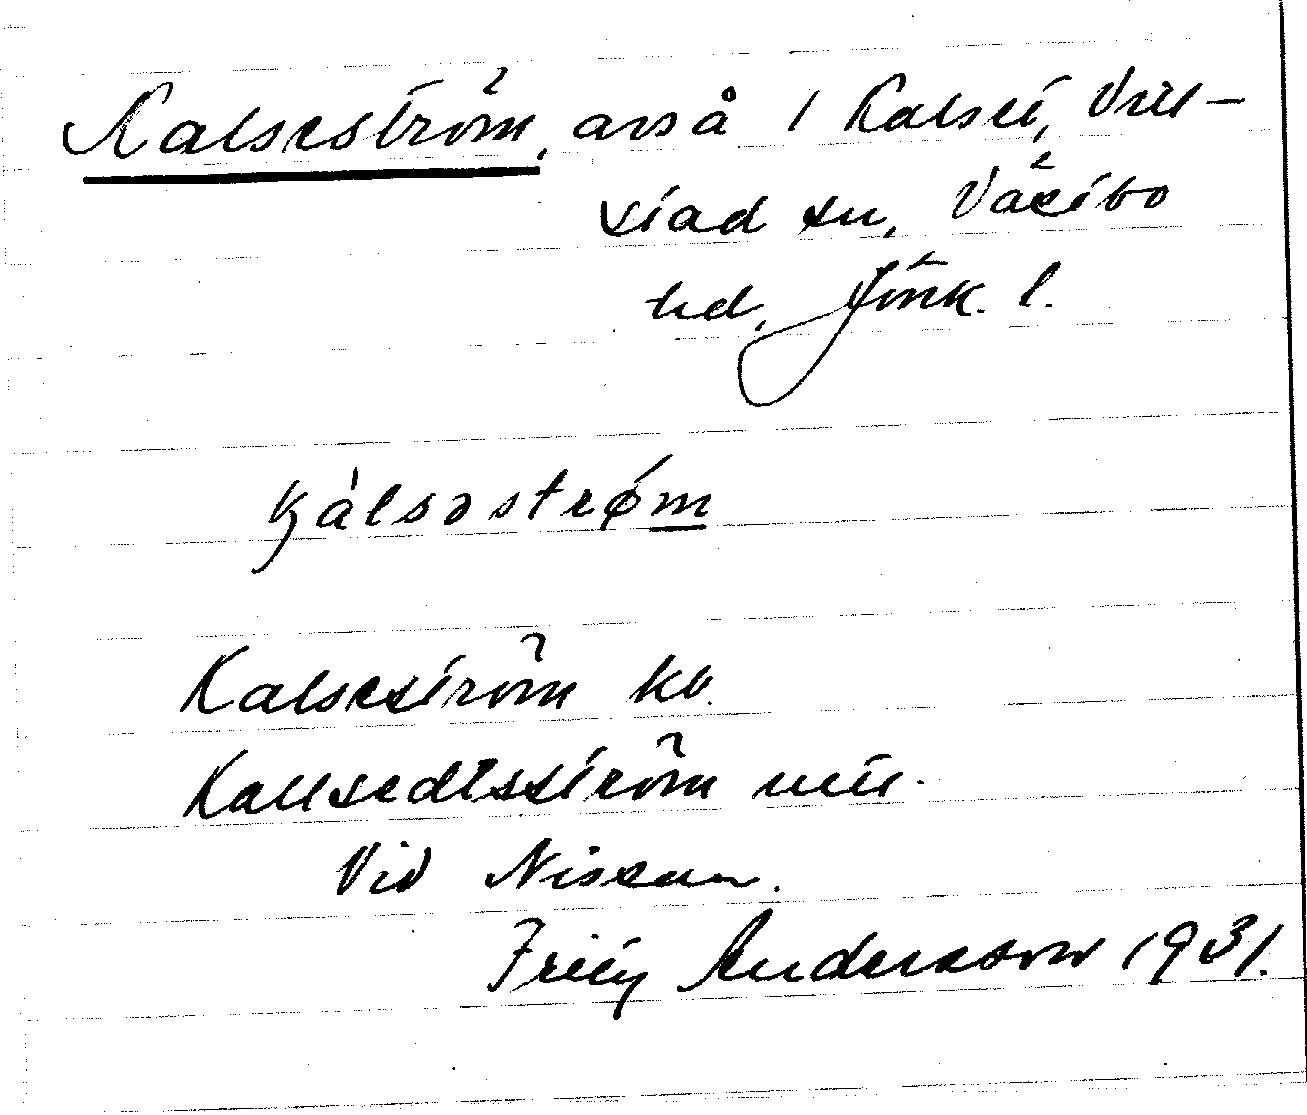 Kalseström, avsö 1 Kalset, Vill-
stad sn, Västbo
hd, Jönk. l.
kálsəstrøm
Kalseström kb.
Kallsedtsström
Vid Nissan.
Andersson 1931.